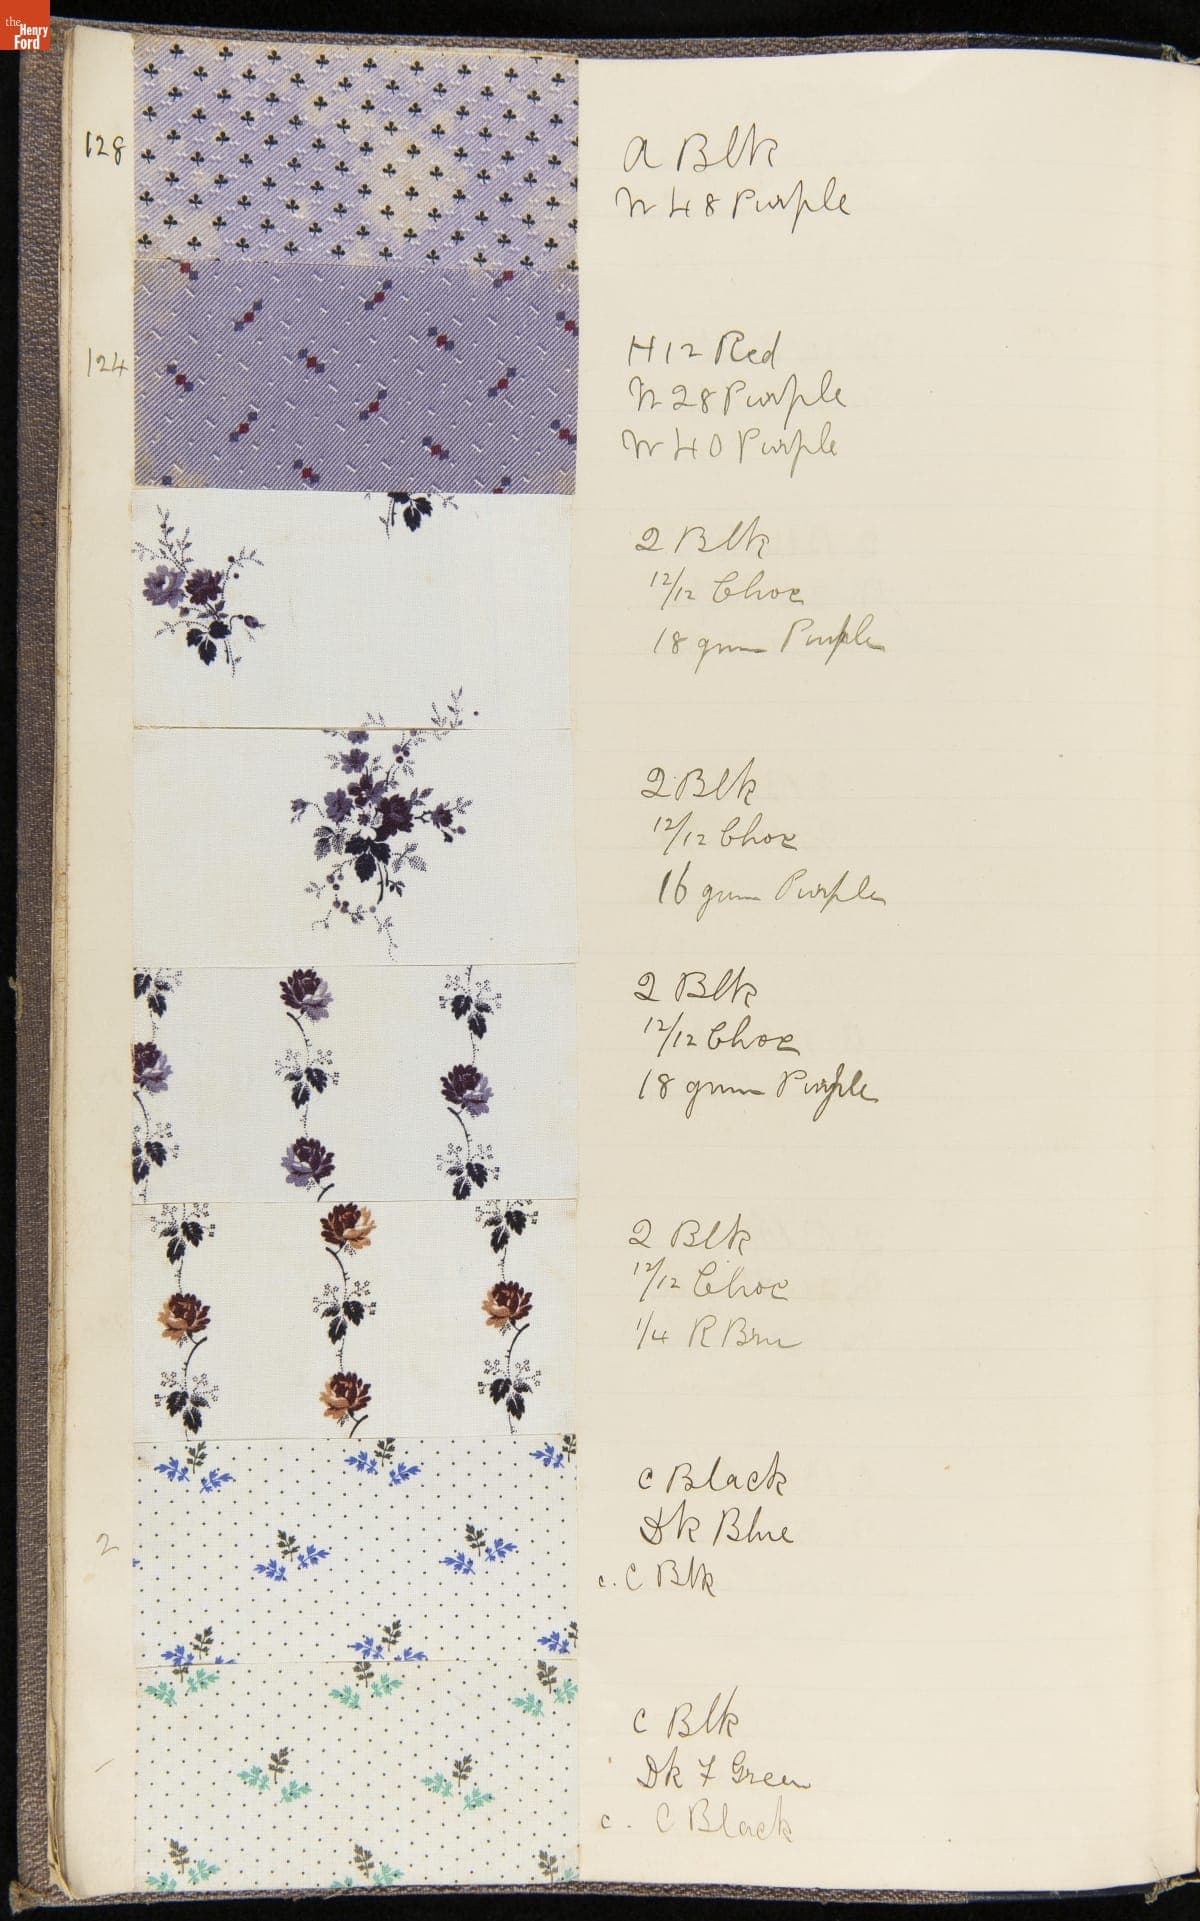 the Henry Ford
128
A Blk
N 48 Purple
124
H 12 Red
N 28 Purple
N 40 Purple
2 Blk
12/12 Choc
18 gum Purple
2 Blk
12/12 Choc
16 gum Purple
2 Blk
12/12 Choc
18 gum Purple
2 Blk
12/12 Choc
1/4 R Brn
2
C Black
Dk Blue
c. C Blk
C Blk
Dk F Green
c. C Black